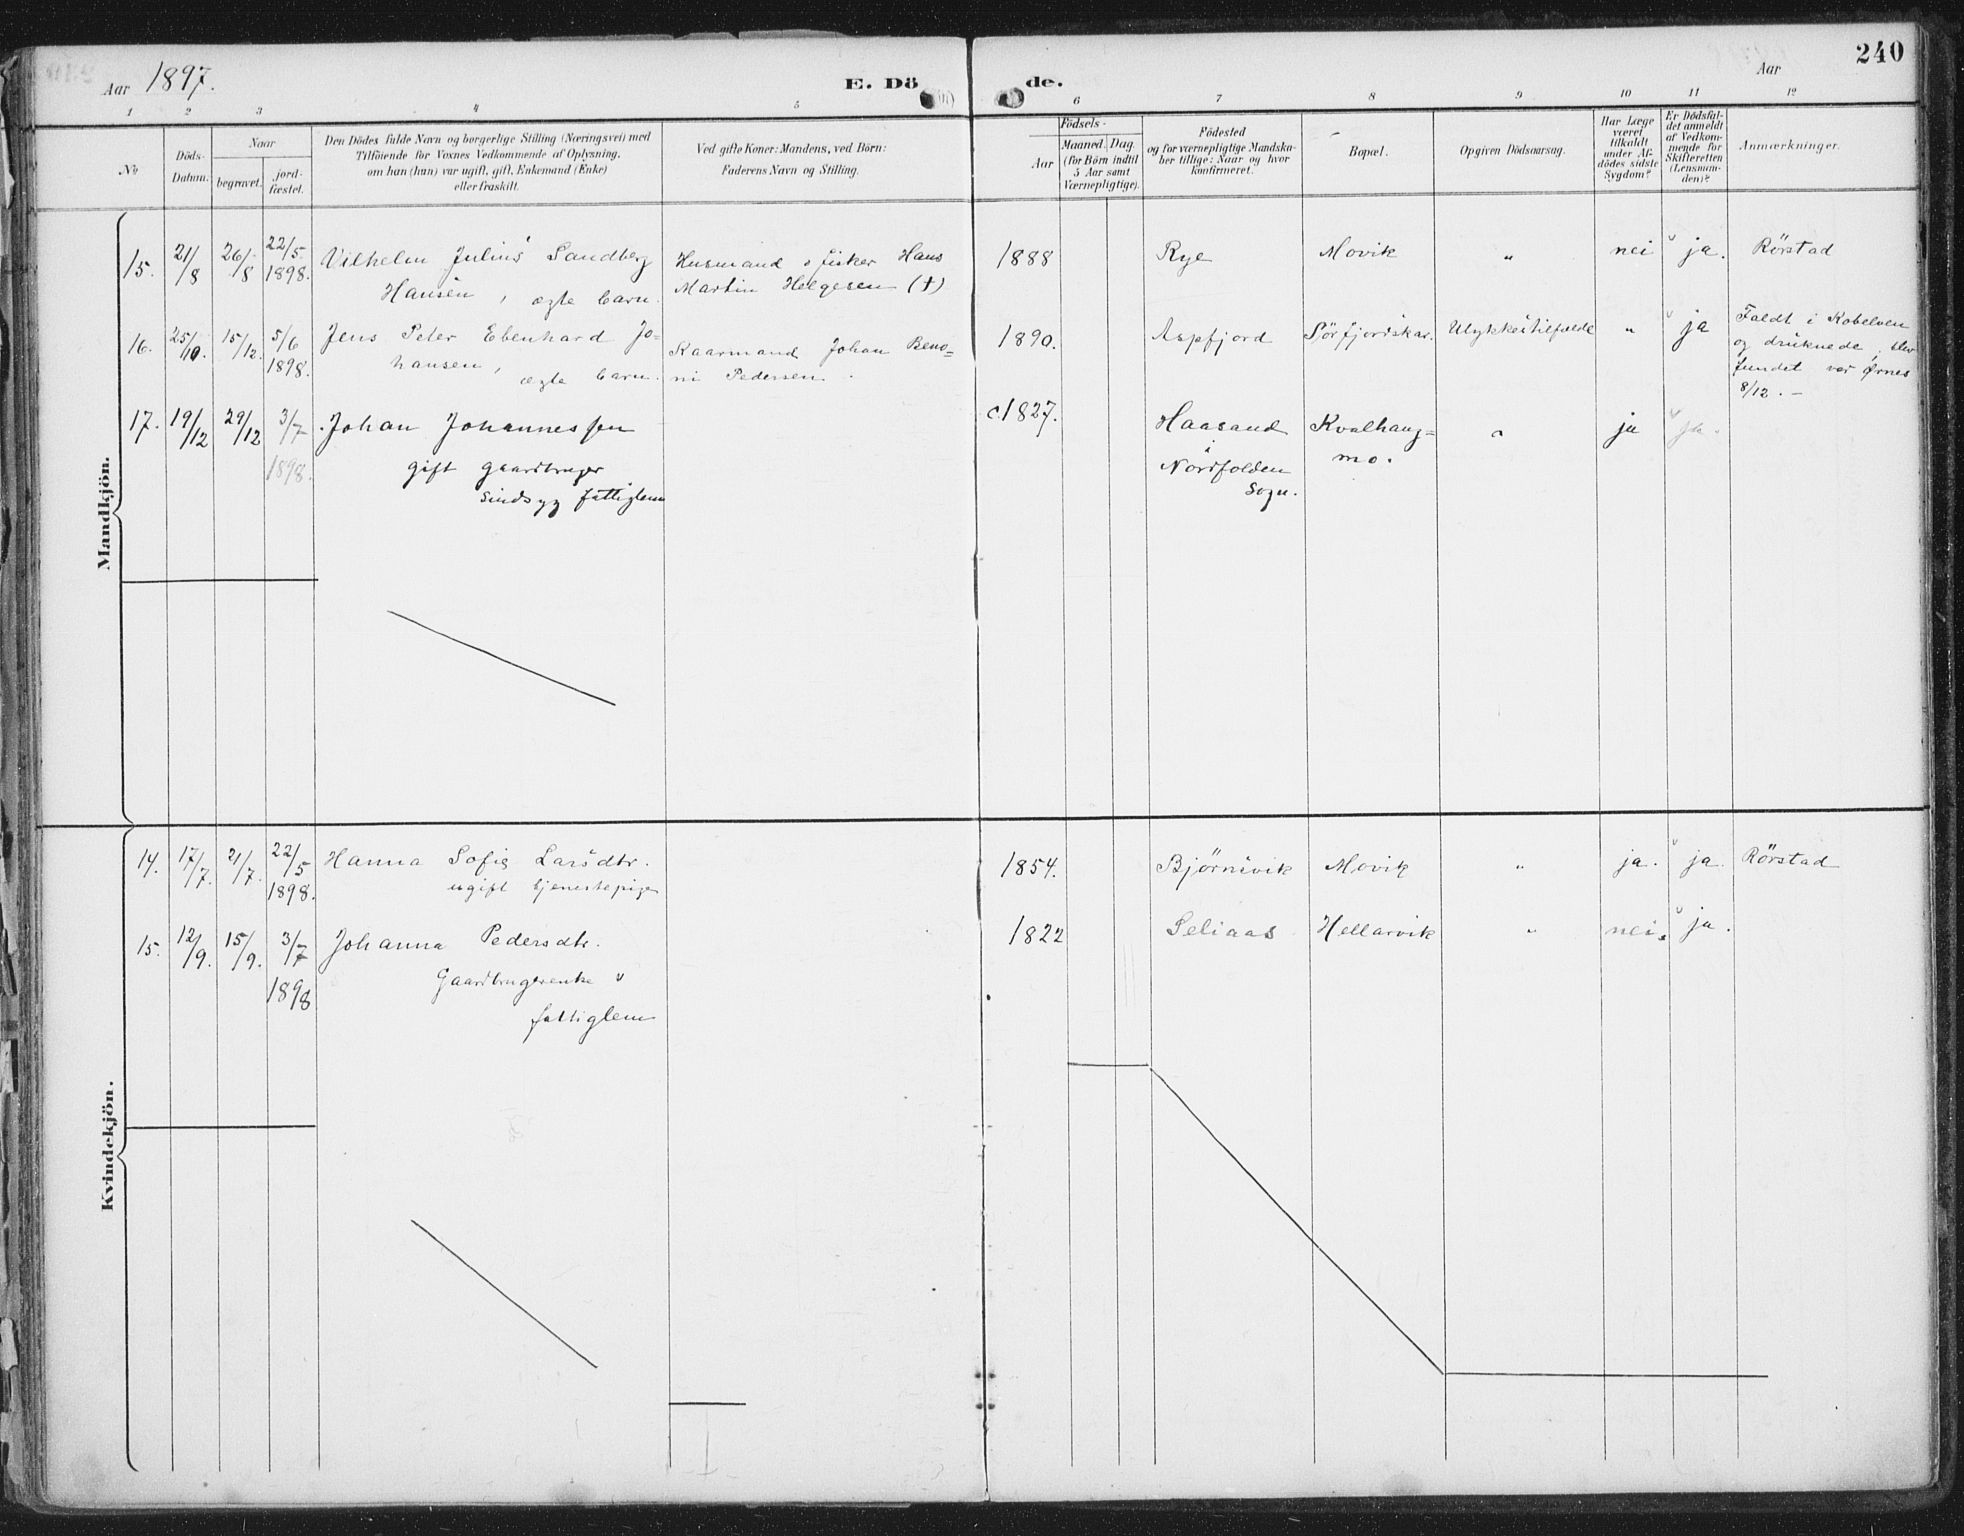 240
Aar 1897.
E. Dö de.
Aar
1 2 3 4 5 6 7 8 9 10 11 12
No
Döds-
Datum.
Naar
begravet.
jord-
fæstet.
Den Dödes fulde Navn og borgerlige Stilling (Næringsvei) med
Tilföiende for Voxnes Vedkommende af Oplysning,
om han (hun) var ugift, gift, Enkemand (Enke)
eller fraskilt.
Ved gifte Koner: Mandens, ved Börn:
Faderens Navn og Stilling.
Födsels-
Aar
Maaned. Dag.
(for Börn indtil
5 Aar samt
Værnepligtige).
Födested
og for værnepligtige Mandska-
ber tillige: Naar og hvor
konfirmeret.
Bopæl.
Opgiven Dödsaarsag.
Har Læge
været
tilkaldt
under Af-
dödes sidste
Sygdom?
Er Dödsfal-
det anmeldt
af Vedkom-
mende for
Skifteretten
(Lensman-
den)?
Anmærkninger.
Mandkjön.
15. 21/8 26/8 22/5 1898. Vilhelm Julius Sandberg
Hansen, ægte barn.
Husmand o fisker Hans
Martin Helgesen (†)
1888 Rye Movik " nei ja. Rörstad
16. 25/10. 15/12. 5/6 1898. Jens Peter Ebenhard Jo-
hansen, ægte barn.
Kaarmand Johan Beno-
ni Pedersen.
1890. Aspfjord Sörfjordskar. Ulykkestilfælde " ja Faldt i Kobelven
og druknede, blev
fundet ver Örnes
8/12. -
17. 19/12 29/12 3/7 1898. Johan Johannessen
gift gaardbruger
sindsyg fattiglem
c.1827. Haasand
i
Nordfolden
Sogn.
Kvalhaug=
mo.
" ja ja.
Kvindekjön.
14. 17/7. 21/7. 22/5 1898. Hanna Sofie Larsdtr.
ugift tjenestepige
1854. Björnsvik Movik " ja. ja. Rörstad
15. 12/9. 15/9. 3/7 1898 Johanna Pedersdtr.
Gaardbrugerenke
fattiglem
1822 Seliaas Hellarvik " nei. ja.